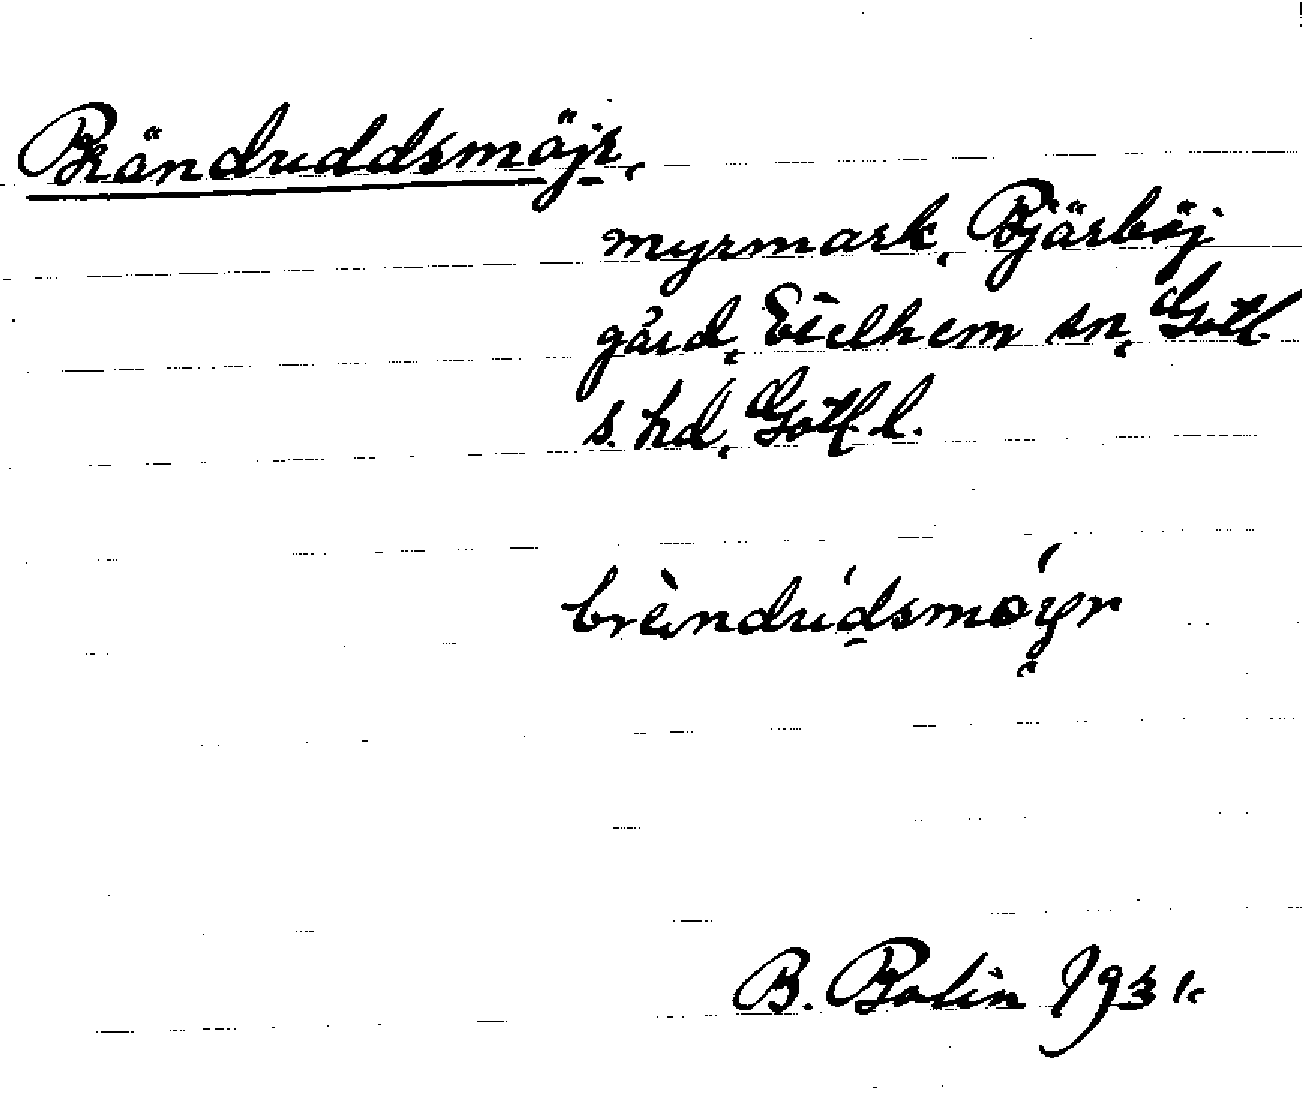 Bränduddsmöjr,
myrmark, Bjärböj
gård, Etelhem sn, Gotl.
s. hd, Gotl. l.
brä̀ndúdsmöyr
B. Bolin 1931.